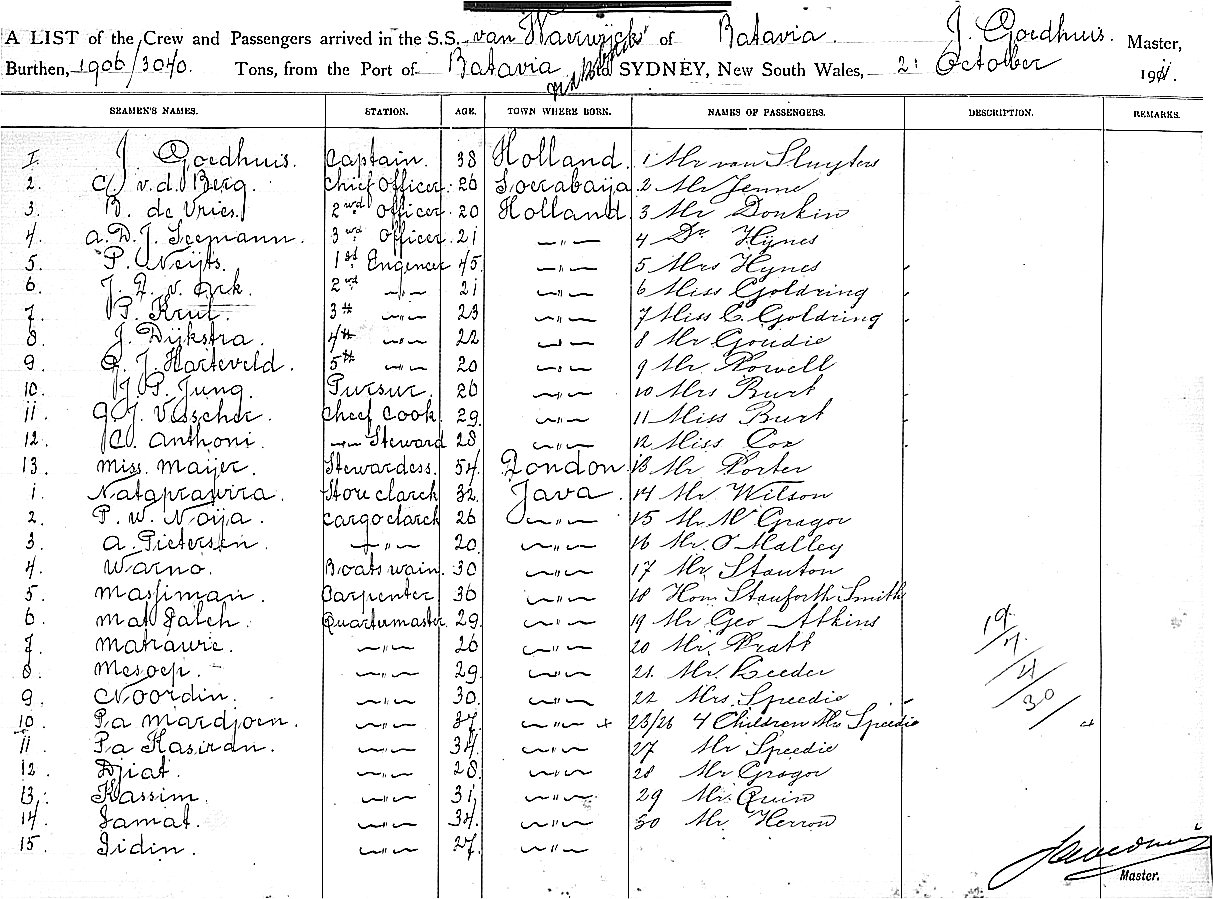 A LIST of the Crew and Passengers arrived in the S.S. van Waerwijck of Batavia J. Goedhuis. Master,
Burthen, 1906/3040. Tons, from the Port of Batavia to SYDNEY, New South Wales, 21 October 1911.
SEAMEN'S NAMES. STATION. AGE. TOWN WHERE BORN. NAMES OF PASSENGERS. DESCRIPTION. REMARKS.
1. J. Goedhuis. Captain. 38 Holland. 1 Mr van Sluyters
2. v.d. Berg. Chief Officer. 26 Soerabaija 2 Mr Jenne
3. B. de Vries. 2nd Officer. 20 Holland. 3 Mr Donkin
4. A.D.J. Seemann. 3rd Officer. 21 —"— 4 Dr Hynes
5. P. Neijts. 1st Engeneer 45. —"— 5 Mrs Hynes
6. J. v. Ark. 2nd —"— 21 —"— 6 Miss Goldring
7. P. Krut. 3th —"— 23 —"— 7 Miss C. Goldring
8. J. Dijkstra. 4th —"— 22 —"— 8 Mr Goudie
9. J. Harteveld. 5th —"— 20 —"— 9 Mr. Powell
10. J. P. Jung. Pursur. 26 —"— 10 Mrs Burt
11. G J. Visscher. Cheef Cook. 29. —"— 11 Miss Burt
12. C. Anthoni. —"— Steward 28 —"— 12 Miss Cox
13. Miss. Maijer. Stewardess. 54. London. 13 Mr. Porter
1. Nataprawira. Store clarck 32. Java. 14 Mr. Wilson
2. P. W. Noija. Cargo clarck 26 —"— 15 Mr. Mc Gragor
3. A. Pietersen. —"— 20. —"— 16 Mr. O'Malley
4. Warno. Boatswain. 30 —"— 17 Mr. Stanton
5. Massiman. Carpenter. 36 —"— 18 Hon. Stanforth Smith
6. Mat Saleh. Quartermaster. 29. —"— 19 Mr Geo Atkins
7. Matrawie. —"— 26 —"— 20 Mr. Pratt
8. Mesoep. —"— 29 —"— 21. Mr. Leeder
9. Noordin. —"— 30. —"— 22 Mrs. Speedie
10. Pa Mardjoen. —"— 37. —"— + 23/26 4 Children Mrs Speedie
11. Pa Kasiran. —"— 34. —"— 27 Mr Speedie
12. Djiat. —"— 28. —"— 28 Mr Gragor
13. Kassim. —"— 31. —"— 29 Mr. Quin
14. Samat. —"— 34. —"— 30 Mr Herron
15. Sidin. —"— 27. —"—
19/
7/
4/
30/
Master.